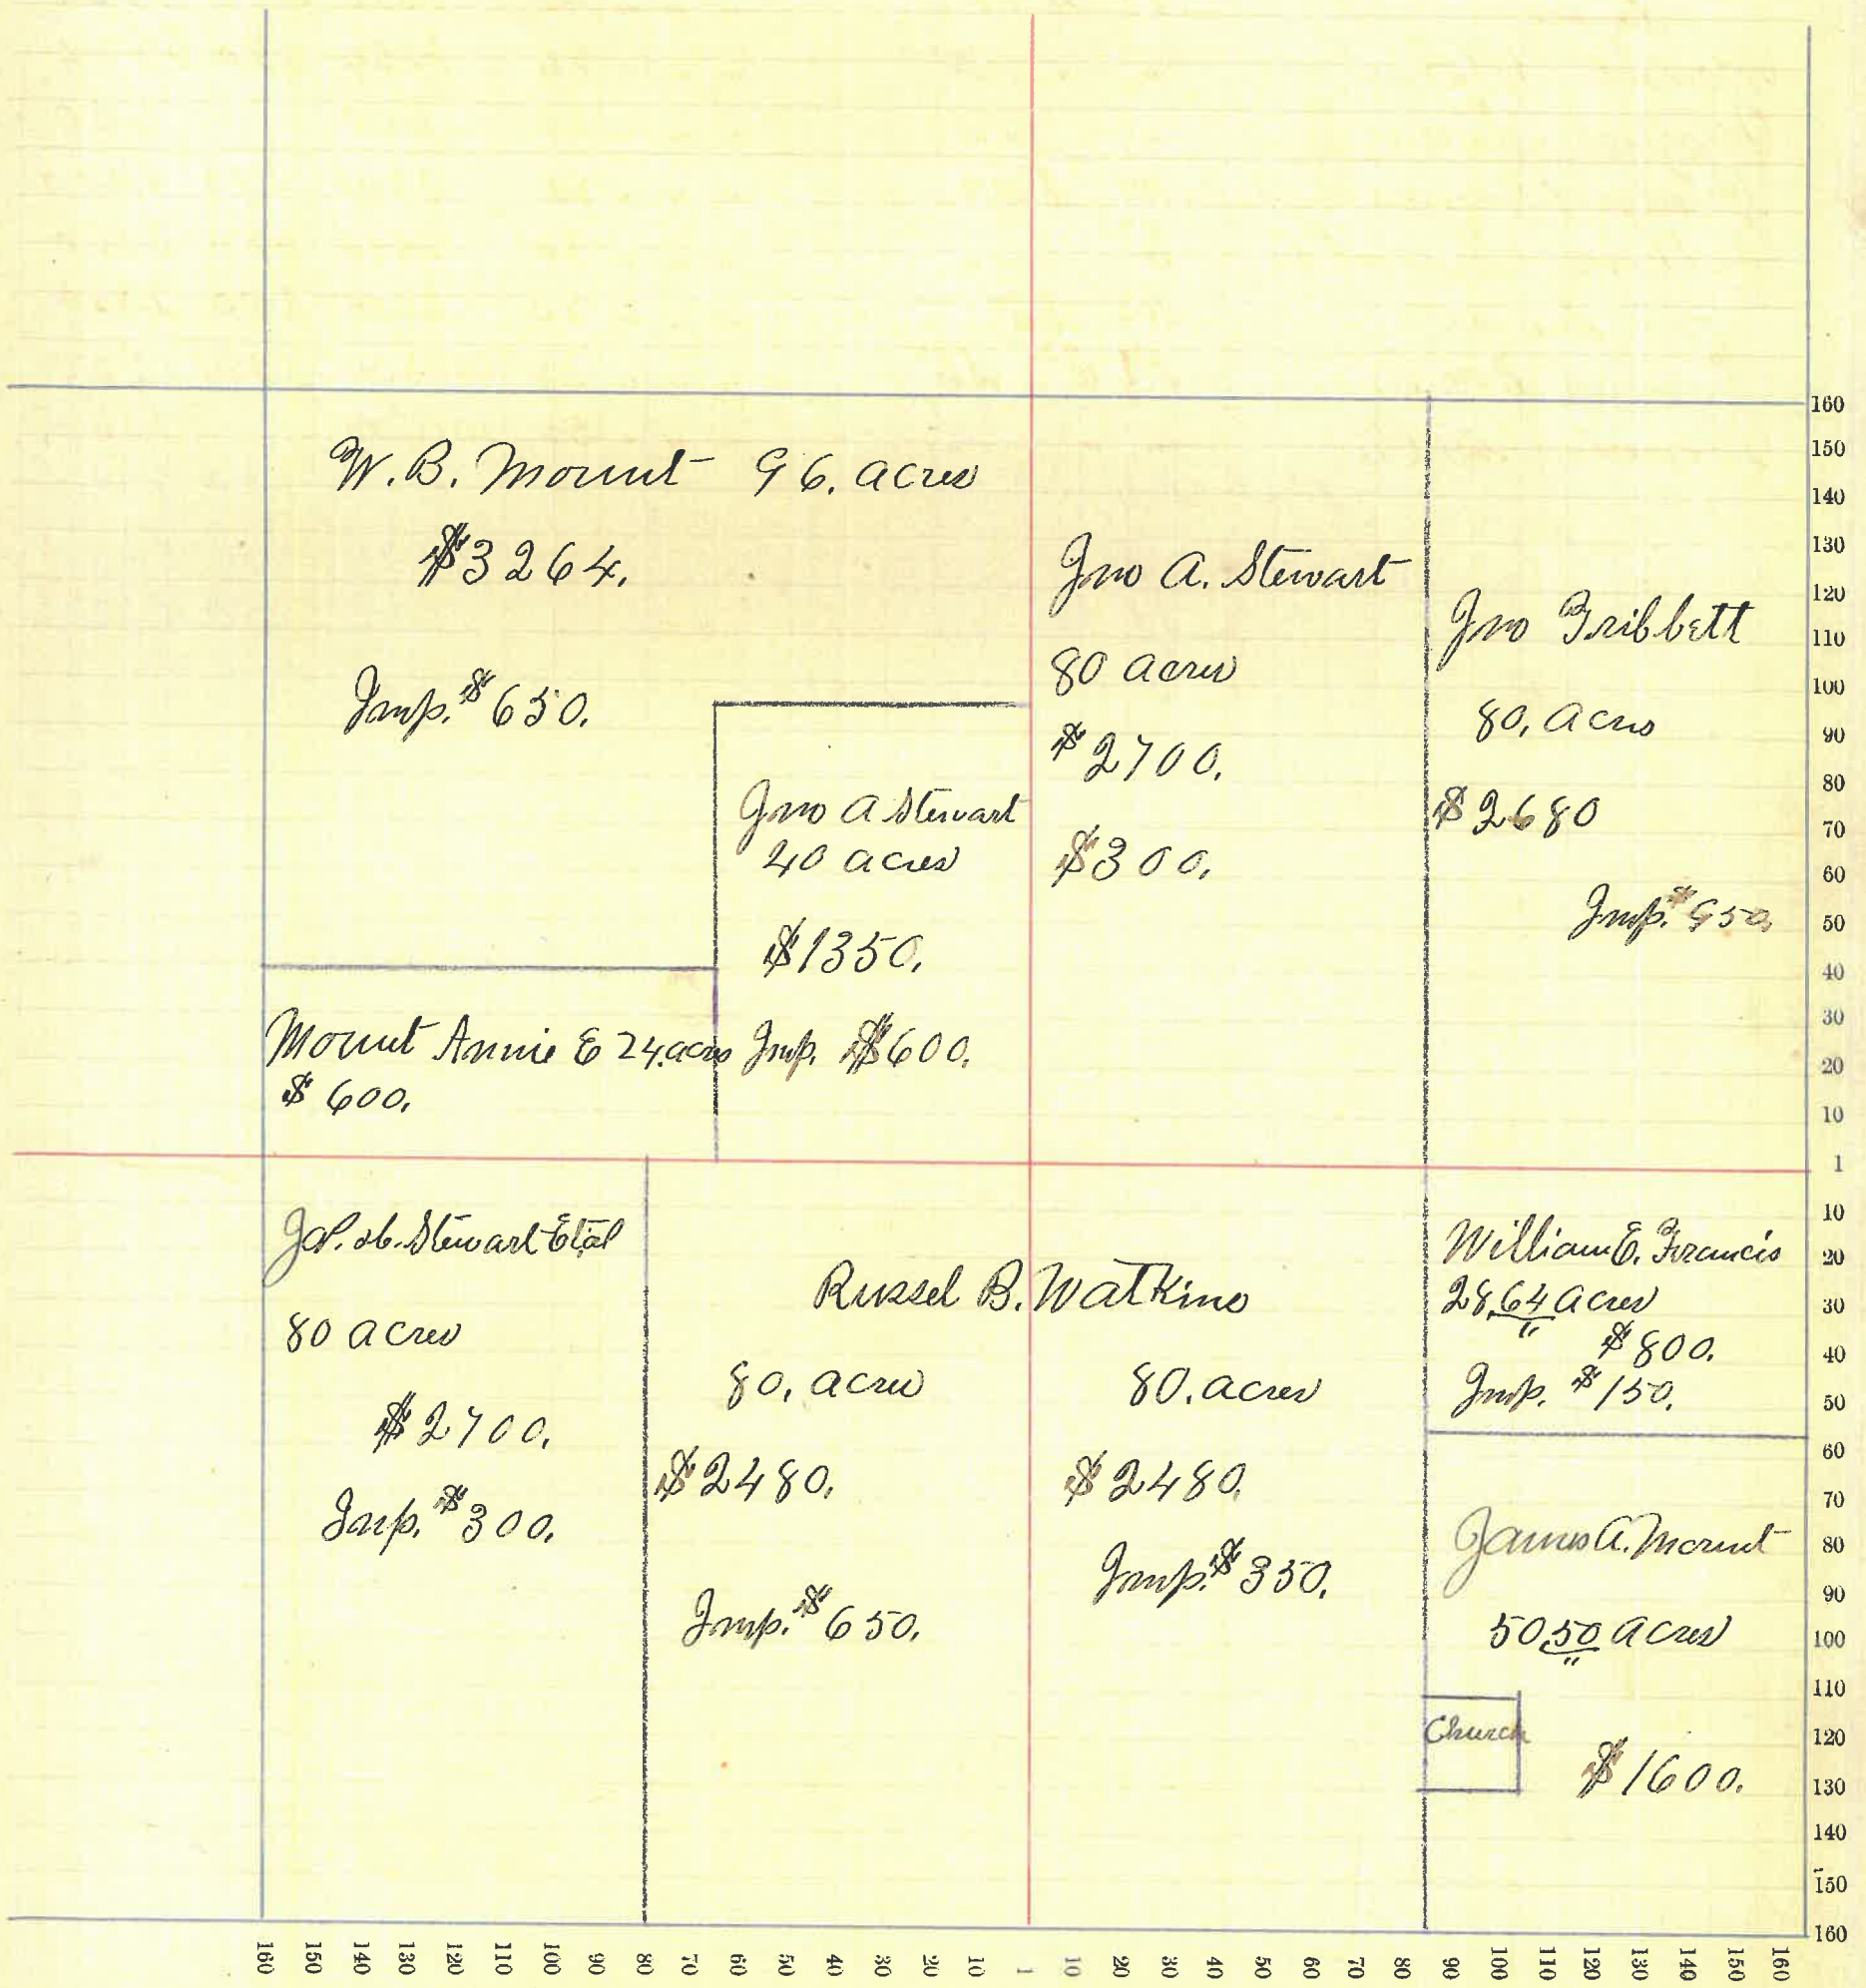 W. B. Mount 96. acres
$3264.
Imp. $650.
Jno A. Stewart
80 acres
$2700.
$300.
Jno Gribbett
80. Acres
$2680
Imp. $950.
Jno A Stewart
40 acres
$1350.
Imp. $600.
Mount Annie E 24. acres
$600.
Stewart Etal
80 acres
$2700.
Imp. $300.
Russel B. Watkins
80. acres
$2480.
Imp. $650.
80. acres
$2480.
Imp. $350.
William E. Francis
28.64 acres
$800.
Imp. $150.
James A. Mount
50.50 acres
Church
$1600.
160
150
140
130
120
110
100
90
80
70
60
50
40
30
20
10
1
10
20
30
40
50
60
70
80
90
100
110
120
130
140
150
160
160 150 140 130 120 110 100 90 80 70 60 50 40 30 20 10 1 10 20 30 40 50 60 70 80 90 100 110 120 130 140 150 160